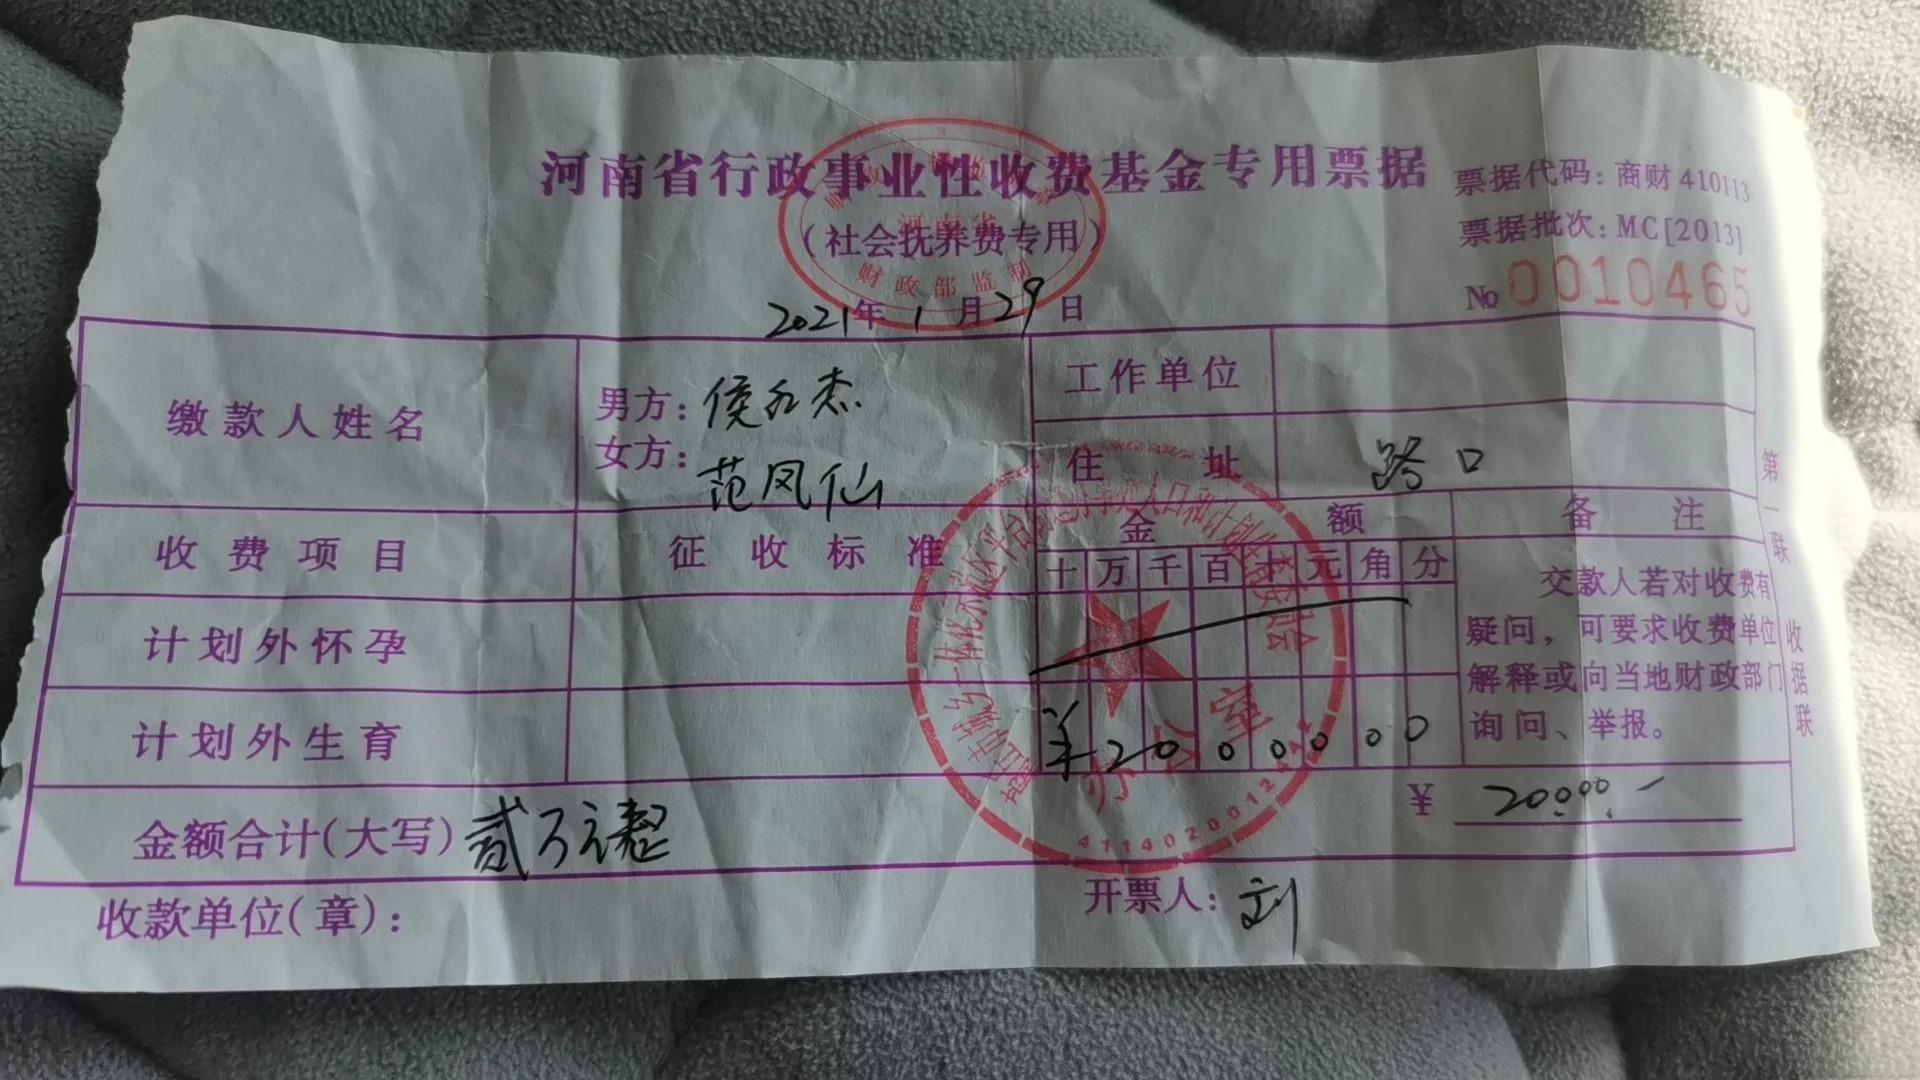 河南省行政事业性收费基金专用票据
(社会抚养费专用)
票据代码:商财410113
票据批次:MC[2013]
№ 0010465
河南省
财政部监制
2021年1月29日
缴款人姓名
男方:侯永杰
女方:范凤仙
工作单位
住址 路口
收费项目 征收标准 金额 备注
十万千百十元角分
计划外怀孕
计划外生育
¥20000000
交款人若对收费有
疑问,可要求收费单位
解释或向当地财政部门
询问、举报。
金额合计(大写)贰万元整
¥ 20000.-
收款单位(章):
开票人:刘
第一联 收据联
办公室
4114020012442